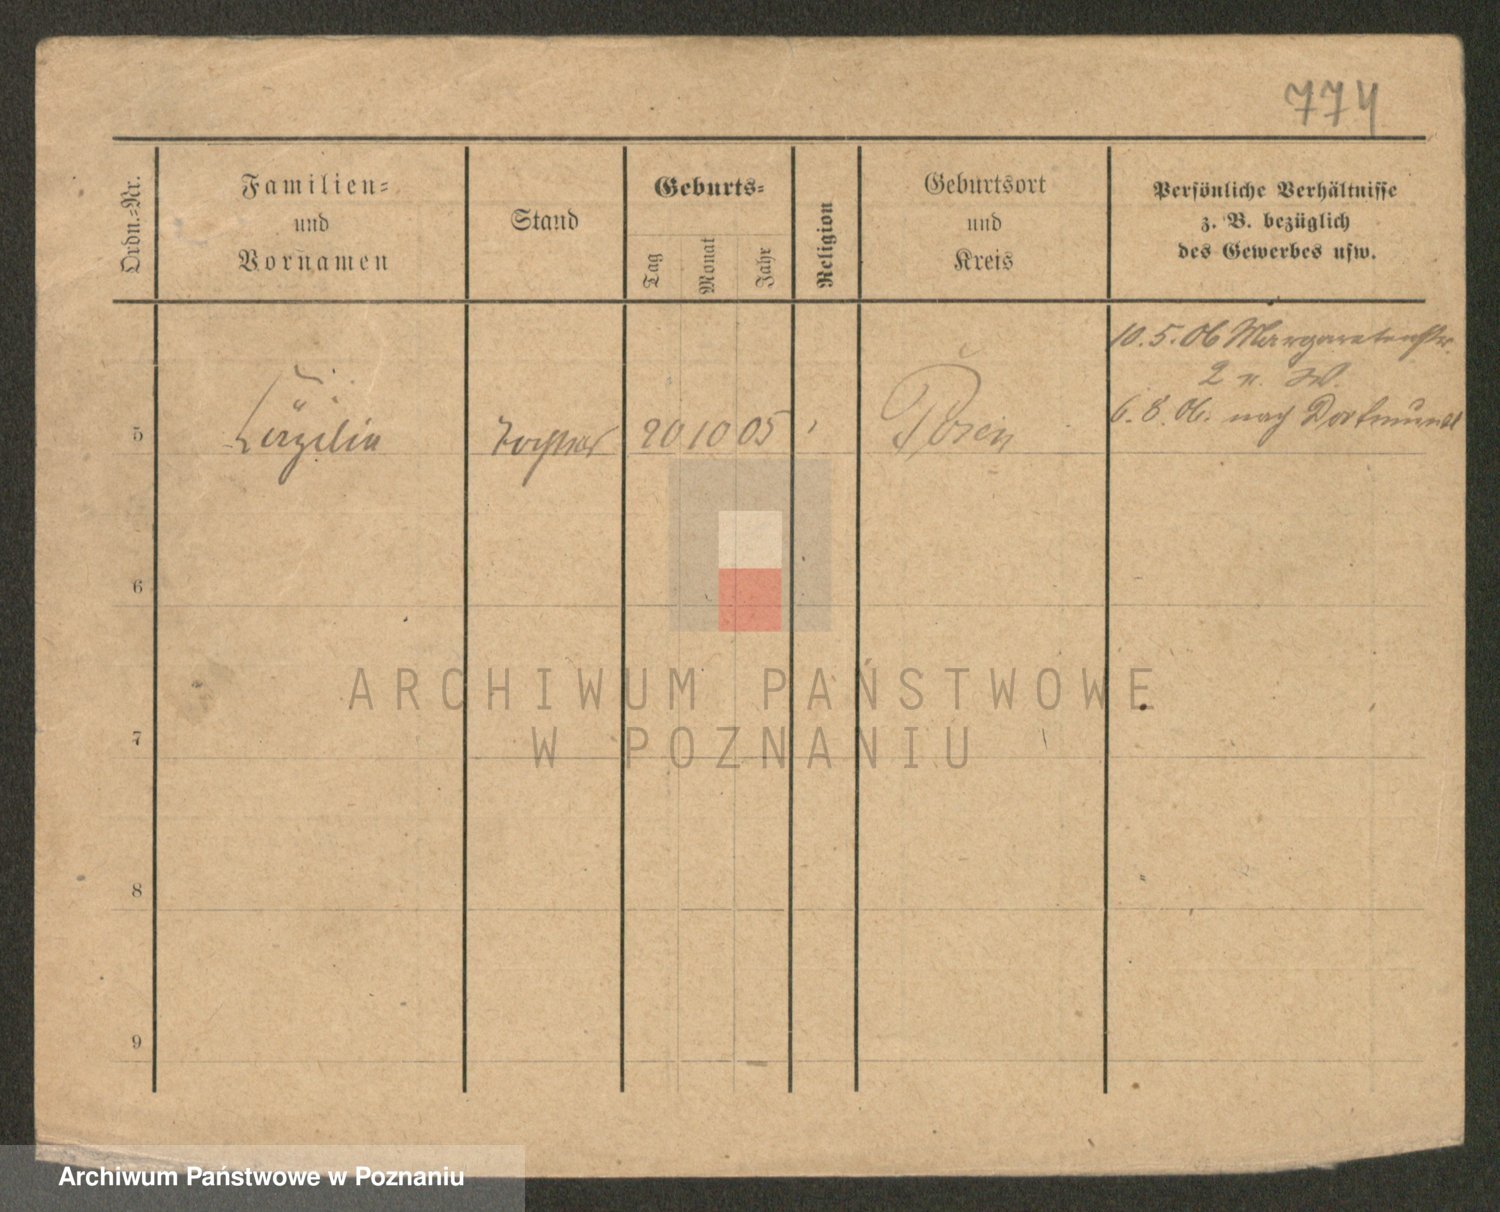 774
Ordn.=Nr.
Familien=
und
Vornamen
Stand
Geburts=
Tag
Monat
Jahr
Religion
Geburtsort
und
Kreis
Persönliche Verhältnisse
z. B. bezüglich
des Gewerbes usw.
10.5.06 Margaretenstr.
2 n. W.
5 Cäzilia Tochter 20 10 05 Posen 6.8.06. nach Dortmund
6
7
8
9
ARCHIWUM PAŃSTWOWE
W POZNANIU
Archiwum Państwowe w Poznaniu